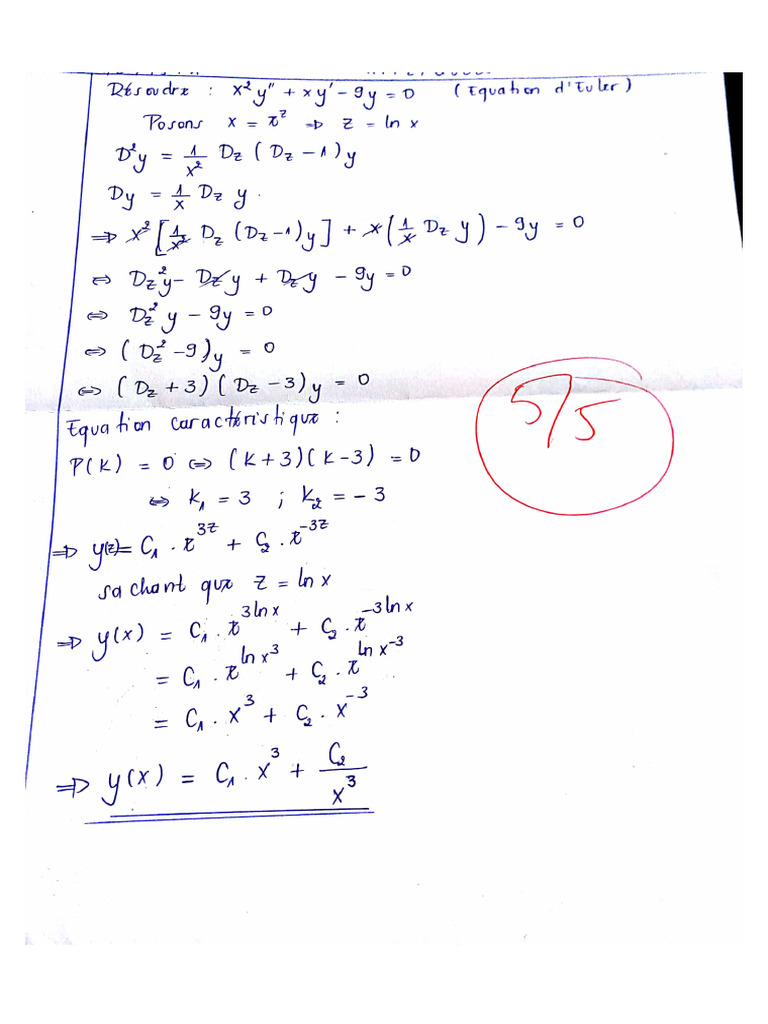 Résoudre : x²y" + xy' - 9y = 0 (Equation d'Euler)
Posons x = e^z ⇒ z = ln x
D²y = 1/x² Dz (Dz - 1)y
Dy = 1/x Dz y.
⇒ x² [1/x² Dz (Dz - 1)y] + x(1/x Dz y) - 9y = 0
⇔ Dz²y - Dz y + Dz y - 9y = 0
⇔ Dz² y - 9y = 0
⇔ (Dz² - 9)y = 0
⇔ (Dz + 3)(Dz - 3)y = 0
5/5
Equation caractéristique :
P(K) = 0 ⇔ (K+3)(K-3) = 0
⇔ K₁ = 3 ; K₂ = -3
⇒ y(z) = C₁ . e^3z + C₂ . e^-3z
sachant que z = ln x
⇒ y(x) = C₁ . e^3 ln x + C₂ . e^-3 ln x
= C₁ . e^ln x³ + C₂ . e^ln x^-3
= C₁ . x³ + C₂ . x^-3
⇒ y(x) = C₁ . x³ + C₂/x³